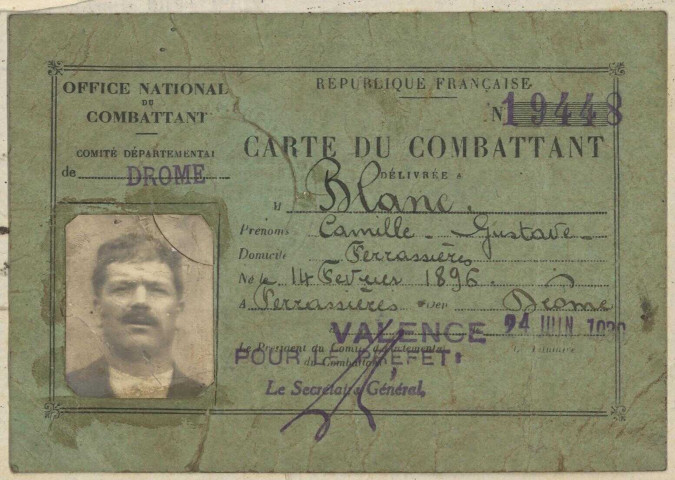 OFFICE NATIONAL
DU
COMBATTANT
COMITÉ DÉPARTEMENTAL
de DROME
RÉPUBLIQUE FRANÇAISE
N 19448
CARTE DU COMBATTANT
DÉLIVRÉE A
M Blanc.
Prénoms Camille - Gustave -
Domicile Ferrassières
Né le 14 Fevrier 1896.
A Ferrassières Dép Drôme
VALENCE 24 JUIN
Le Président du Comité départemental
Le Titulaire
du Combattant
POUR LE PRÉFET:
Le Secrétaire Général,